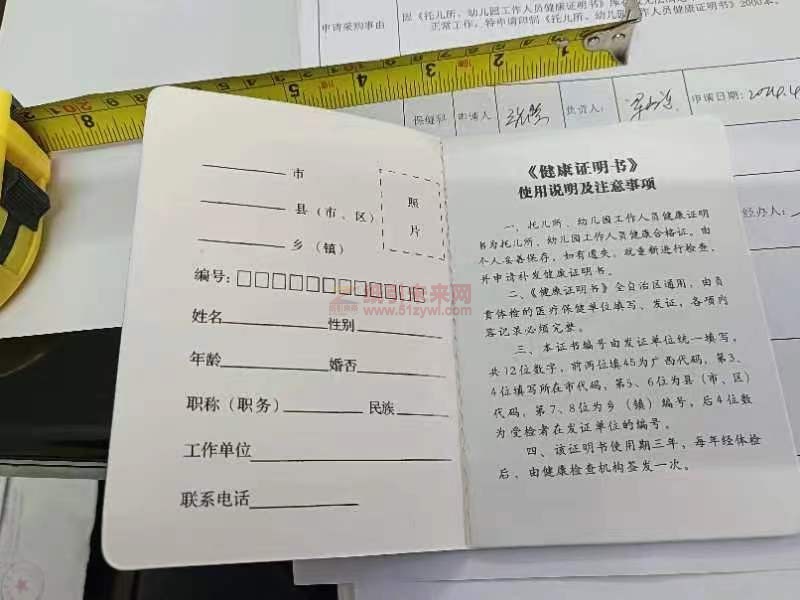 申请采购事由
正常工作,特申请印制《托儿所、幼儿园工作人员健康证明书》2000本。
保健科 申请人 负责人: 申请日期:2024.4
经办人:
8 5 4 3 2 1
市
县(市、区)
乡(镇)
照
片
编号:□□□□□□□□□□□□
姓名 性别
年龄 婚否
职称(职务) 民族
工作单位
联系电话
《健康证明书》
使用说明及注意事项
一、托儿所、幼儿园工作人员健康证明
书为托儿所、幼儿园工作人员健康合格证。由
个人妥善保存,如有遗失,就重新进行检查,
并申请补发健康证明书。
二、《健康证明书》全自治区通用,由负
责体检的医疗保健单位填写、发证,各项内
容记录必须完整。
三、本证书编号由发证单位统一填写,
共12位数字,前两位填45为广西代码,第3、
4位填写所在市代码,第5、6位为县(市、区)
代码,第7、8位为乡(镇)编号,后4位数
为受检者在发证单位的编号。
四、该证明书使用期三年,每年经体检
后,由健康检查机构签发一次。
www.51zywl.com